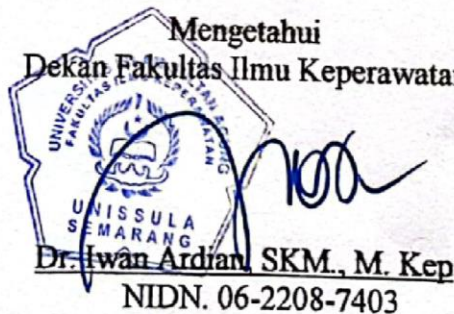 Mengetahui
Dekan Fakultas Ilmu Keperawatan
UNIVERSITAS ISLAM SULTAN AGUNG
FAKULTAS ILMU KEPERAWATAN
UNISSULA
SEMARANG
Dr. Iwan Ardian, SKM., M. Kep
NIDN. 06-2208-7403